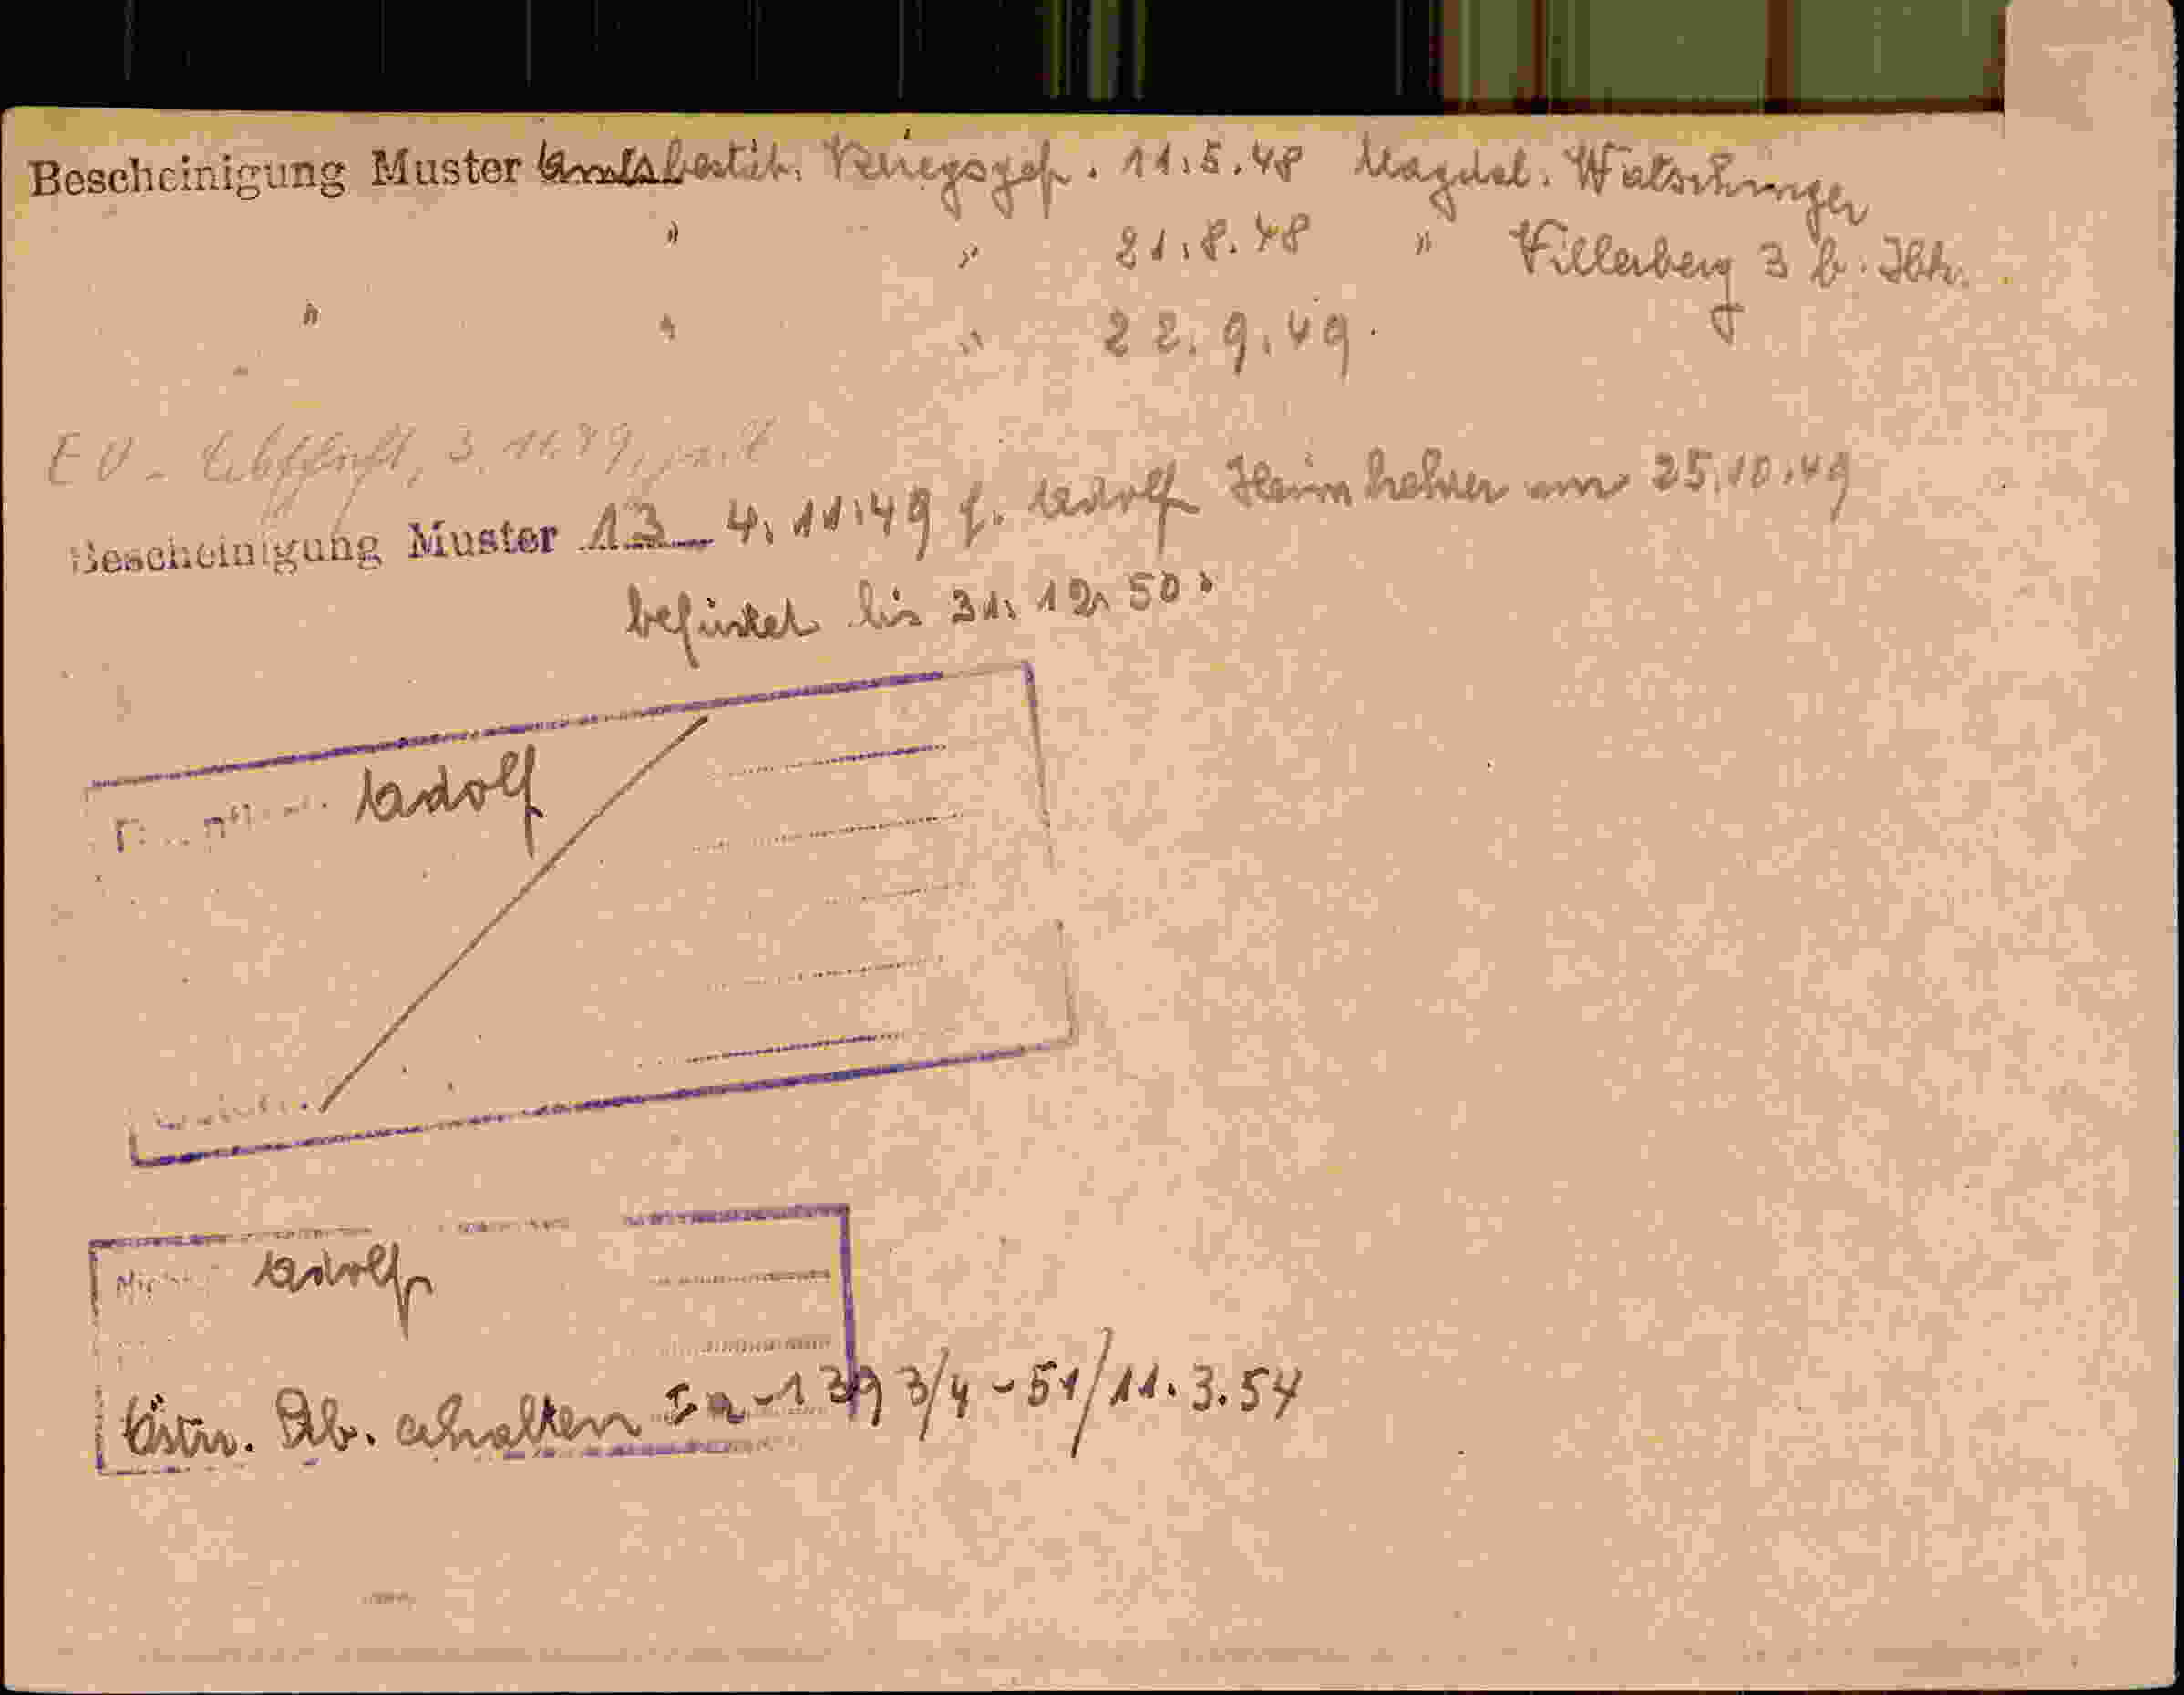 Bescheinigung Muster Amtsbestät. Kriegsgef. 11.5.48 Magdal. Watschinger
" " 21.8.48 " Villerberg 3 b. Ibk.
" " " 22.9.49.
EV - 3.11.49
Bescheinigung Muster 13 4.11.49 f. Adolf Heimkehrer am 25.10.49
befristet bis 31.12.50.
Adolf
Adolf
Östr. Stb. erhalten Ia-1393/4-51/11.3.54